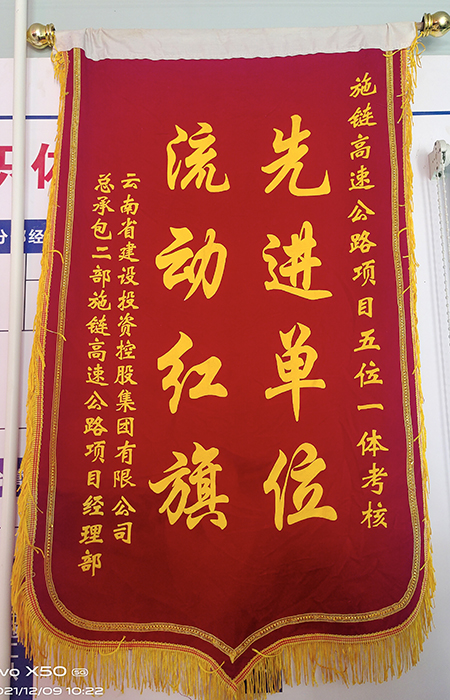 施链高速公路项目五位一体考核
先进单位
流动红旗
云南省建设投资控股集团有限公司
总承包二部施链高速公路项目经理部
X50 5G
2021/12/09 10:22